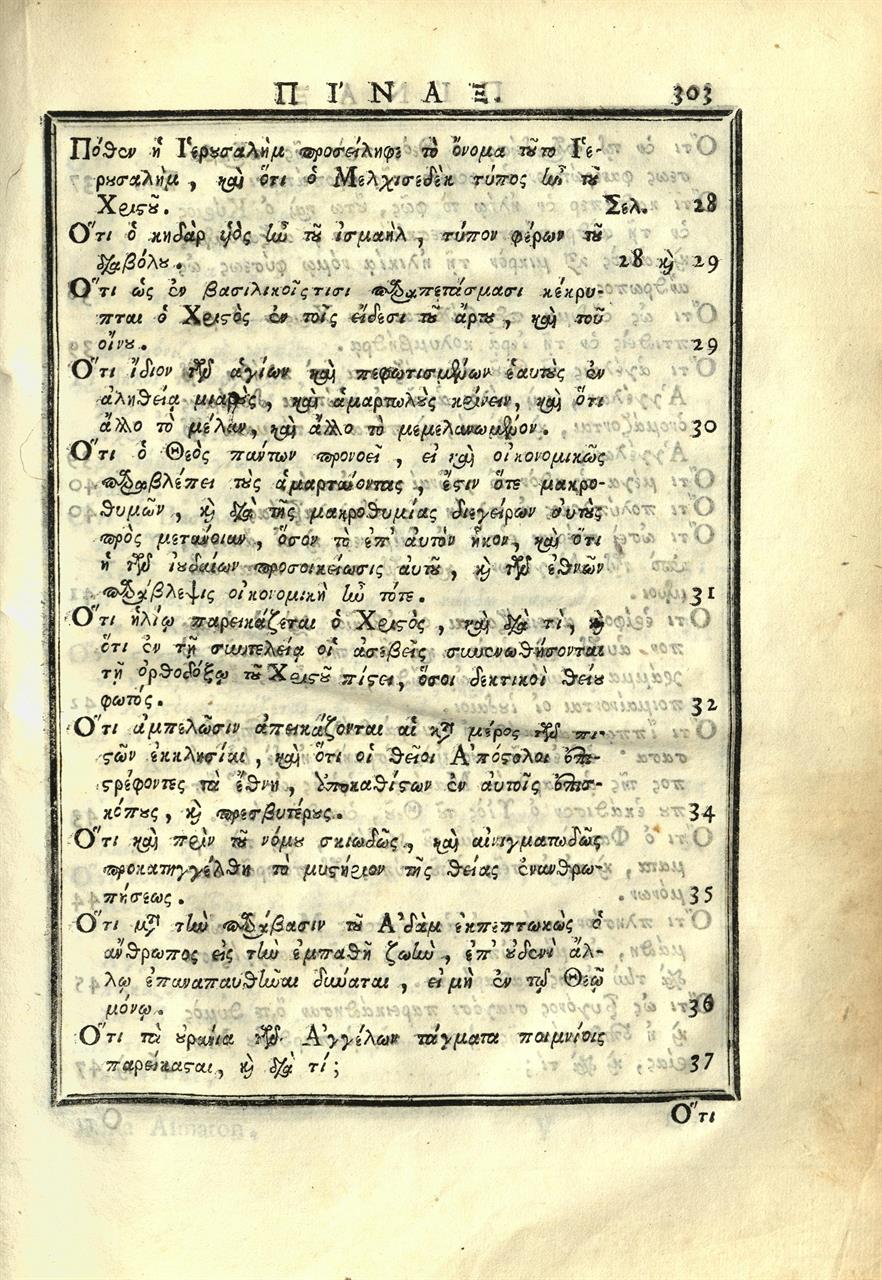 ΠΙ´ΝΑΞ. 303
Πόθεν ἡ Ἱερουσαλὴμ προσείληφε τὸ ὄνομα τοῦτο Ἱε-
ρουσαλὴμ, καὶ ὅτι ὁ Μελχισεδὲκ τύπος ἦν τοῦ
Χριστοῦ. Σελ. 28
Ὅτι ὁ κηδὰρ υἱὸς ἦν τοῦ ἰσμαὴλ, τύπον φέρων τοῦ
διαβόλου. 28 καὶ 29
Ὅτι ὡς ἐν βασιλικοῖς τισι παραπετάσμασι κέκρυ-
πται ὁ Χριστὸς ἐν τοῖς εἴδεσι τοῦ ἄρτου, καὶ τοῦ
οἴνου. 29
Ὅτι ἴδιον τῶν ἁγίων καὶ πεφωτισμένων ἑαυτοὺς ἐν
ἀληθείᾳ μιαροὺς, καὶ ἁμαρτωλοὺς κρίνειν, καὶ ὅτι
ἄλλο τὸ μέλαν, καὶ ἄλλο τὸ μεμελανωμένον. 30
Ὅτι ὁ Θεὸς πάντων προνοεῖ, εἰ καὶ οἰκονομικῶς
παραβλέπει τοὺς ἁμαρτάνοντας, ἔστιν ὅτε μακρο-
θυμῶν, καὶ διὰ τῆς μακροθυμίας διεγείρων αὐτοὺς
πρὸς μετάνοιαν, ὅσον τὸ ἐπ' αὐτὸν ἧκον, καὶ ὅτι
ἡ τῶν ἰουδαίων προσοικείωσις αὐτοῦ, καὶ τῶν ἐθνῶν
παράβλεψις οἰκονομικὴ ἦν τότε. 31
Ὅτι ἡλίῳ παρεικάζεται ὁ Χριστὸς, καὶ διὰ τὶ, καὶ
ὅτι ἐν τῇ συντελείᾳ οἱ ἀσεβεῖς συνενωθήσονται
τῇ ὀρθοδόξῳ τοῦ Χριστοῦ πίστει, ὅσοι δεκτικοὶ θείου
φωτός. 32
Ὅτι ἀμπελῶσιν ἀπεικάζονται αἱ κατὰ μέρος τῶν πι-
στῶν ἐκκλησίαι, καὶ ὅτι οἱ θεῖοι Ἀπόστολοι ἐπι-
στρέφοντες τὰ ἔθνη, ἐποκαθίστων ἐν αὐτοῖς ἐπισ-
κόπους, καὶ πρεσβυτέρους. 34
Ὅτι καὶ πρὶν τοῦ νόμου σκιωδῶς, καὶ αἰνιγματωδῶς
προκατηγγέλθη τὸ μυστήριον τῆς θείας ἐνανθρω-
πήσεως. 35
Ὅτι μετὰ τὴν παράβασιν τοῦ Ἀδὰμ ἐκπεπτωκὼς ὁ
ἄνθρωπος εἰς τὴν ἐμπαθῆ ζωὴν, ἐπ' οὐδενὶ ἄλ-
λῳ ἐπαναπαυθῆναι δύναται, εἰ μὴ ἐν τῷ Θεῷ
μόνῳ. 36
Ὅτι τὰ οὐράνια τῶν Ἀγγέλων τάγματα ποιμνίοις
παρείκασται, καὶ διὰ τί; 37
Ὅτι